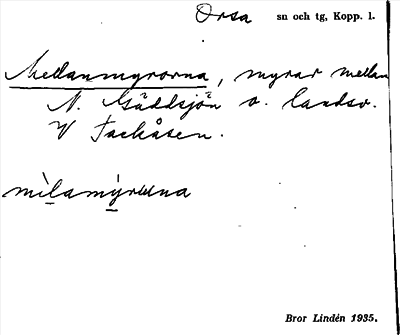 Orsa sn och tg, Kopp. l.
Mellanmyrorna, myrar mellan
N. Gäddsjön o. landsv.
V Fackåsen.
Bror Lindén 1935.